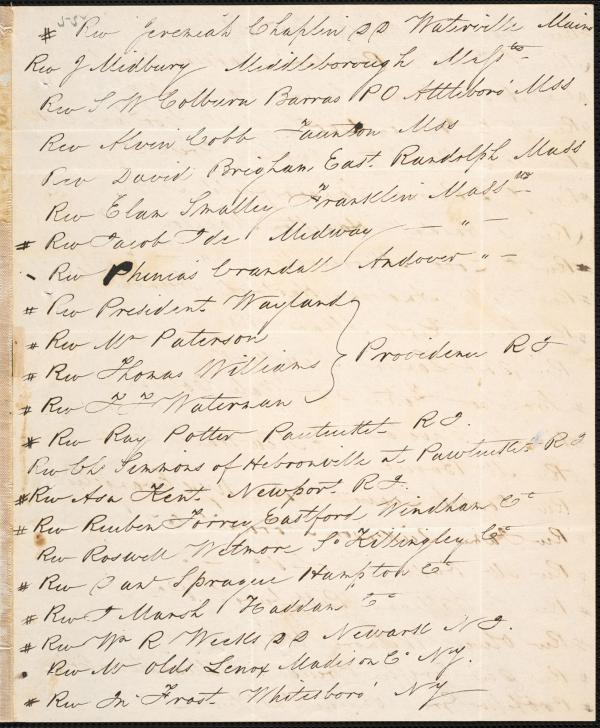 # Rev Jeremiah Chaplin DD Waterville Maine
Rev J Medbury Middleborough Massts
Rev S W Colburn Barras PO Attleboro' Mss
Rev Alvin Cobb Taunton Mss
Rev David Brigham East Randolph Mass
Rev Elam Smalley Franklin Mass
# Rev Jacob Ide Midway — " —
Rev Phinias Crandall Andover " —
# Rev President Wayland
# Rev Mr Paterson
# Rev Thomas Williams } Providence R I
# Rev Waterman
# Rev Ray Potter Pautucket R I.
Rev Ch Simmons of Hebronville at Pawtucket R I
# Rev Asa Kent Newport R I.
# Rev Reuben Torrey Eastford Windham Ct
Rev Roswell Wetmore So Killingley Ct
# Rev Danl Sprague Hampton Ct
# Rev T Marsh Haddam Ct
# Rev Wm R Weeks DD Newark N J.
Rev Mr Olds Lenox Madison Co NY.
# Rev Jn Frost Whitesboro' NY